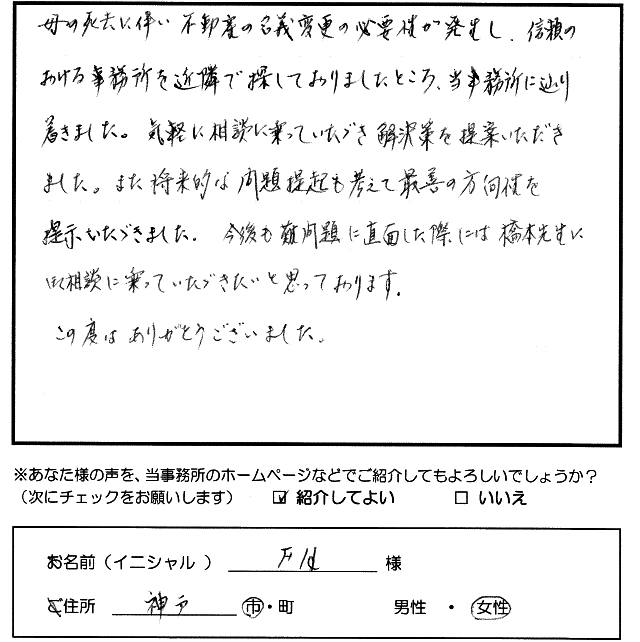 母の死去に伴い不動産の名義変更の必要性が発生し、信頼の
おける事務所を近隣で探しておりましたところ、当事務所に辿り
着きました。気軽に相談に乗っていただき解決策を提案いただき
ました。また将来的な問題提起も考えて最善の方向性を
提示いただきました。今後も難問題に直面した際には橋本先生に
ご相談に乗っていただきたいと思っております。
この度はありがとうございました。
※あなた様の声を、当事務所のホームページなどでご紹介してもよろしいでしょうか？
（次にチェックをお願いします） ☑ 紹介してよい □ いいえ
お名前（イニシャル ） 様
ご住所 神戸 市・町 男性 ・ 女性